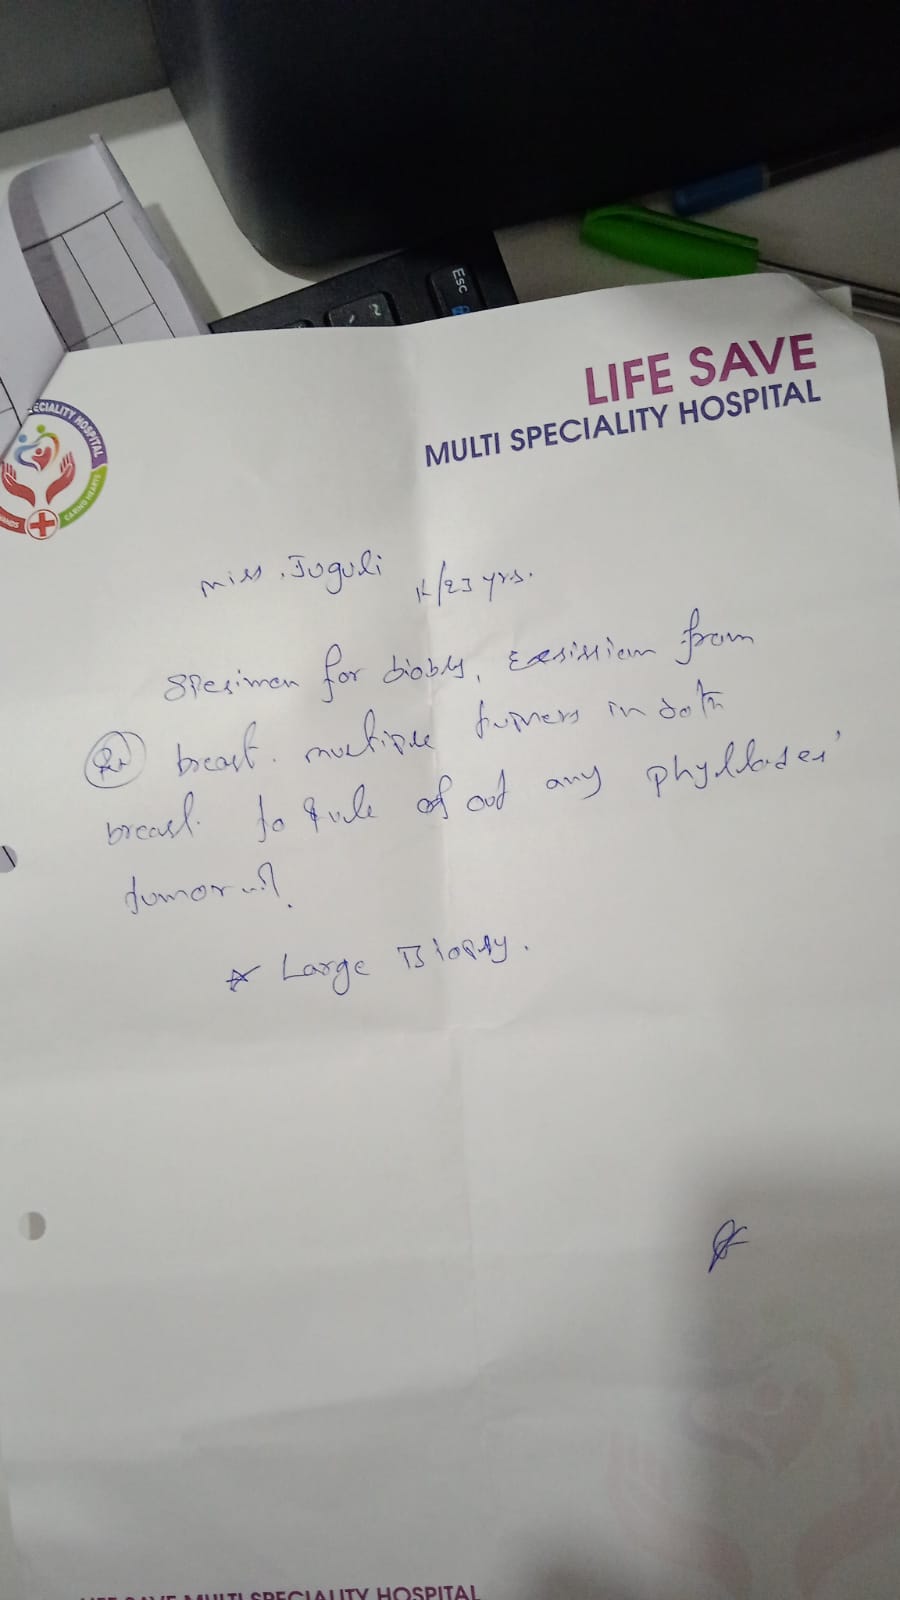 ESC
LIFE SAVE
MULTI SPECIALITY HOSPITAL
ECIALITY HOSPITAL
HANDS
CARING HEARTS
Miss. Juguli /23 yrs.
Spesimen for biobsy, from
Rt breast. multiple tumers in both
breast. to rule of out any phyllodes'
tumor
* Large Biopsy.
LIFE SAVE MULTI SPECIALITY HOSPITAL